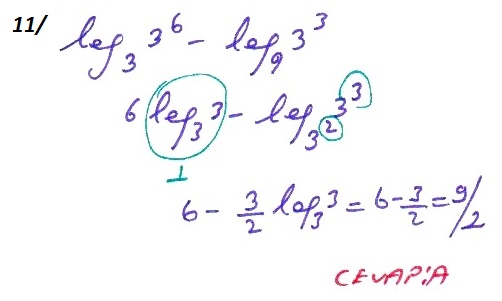 11/ log₃ 3⁶ - log₉ 3³
6 log₃ 3 - log₃² 3³
1
6 - 3/2 log₃ 3 = 6 - 3/2 = 9/2
CEVAP:A